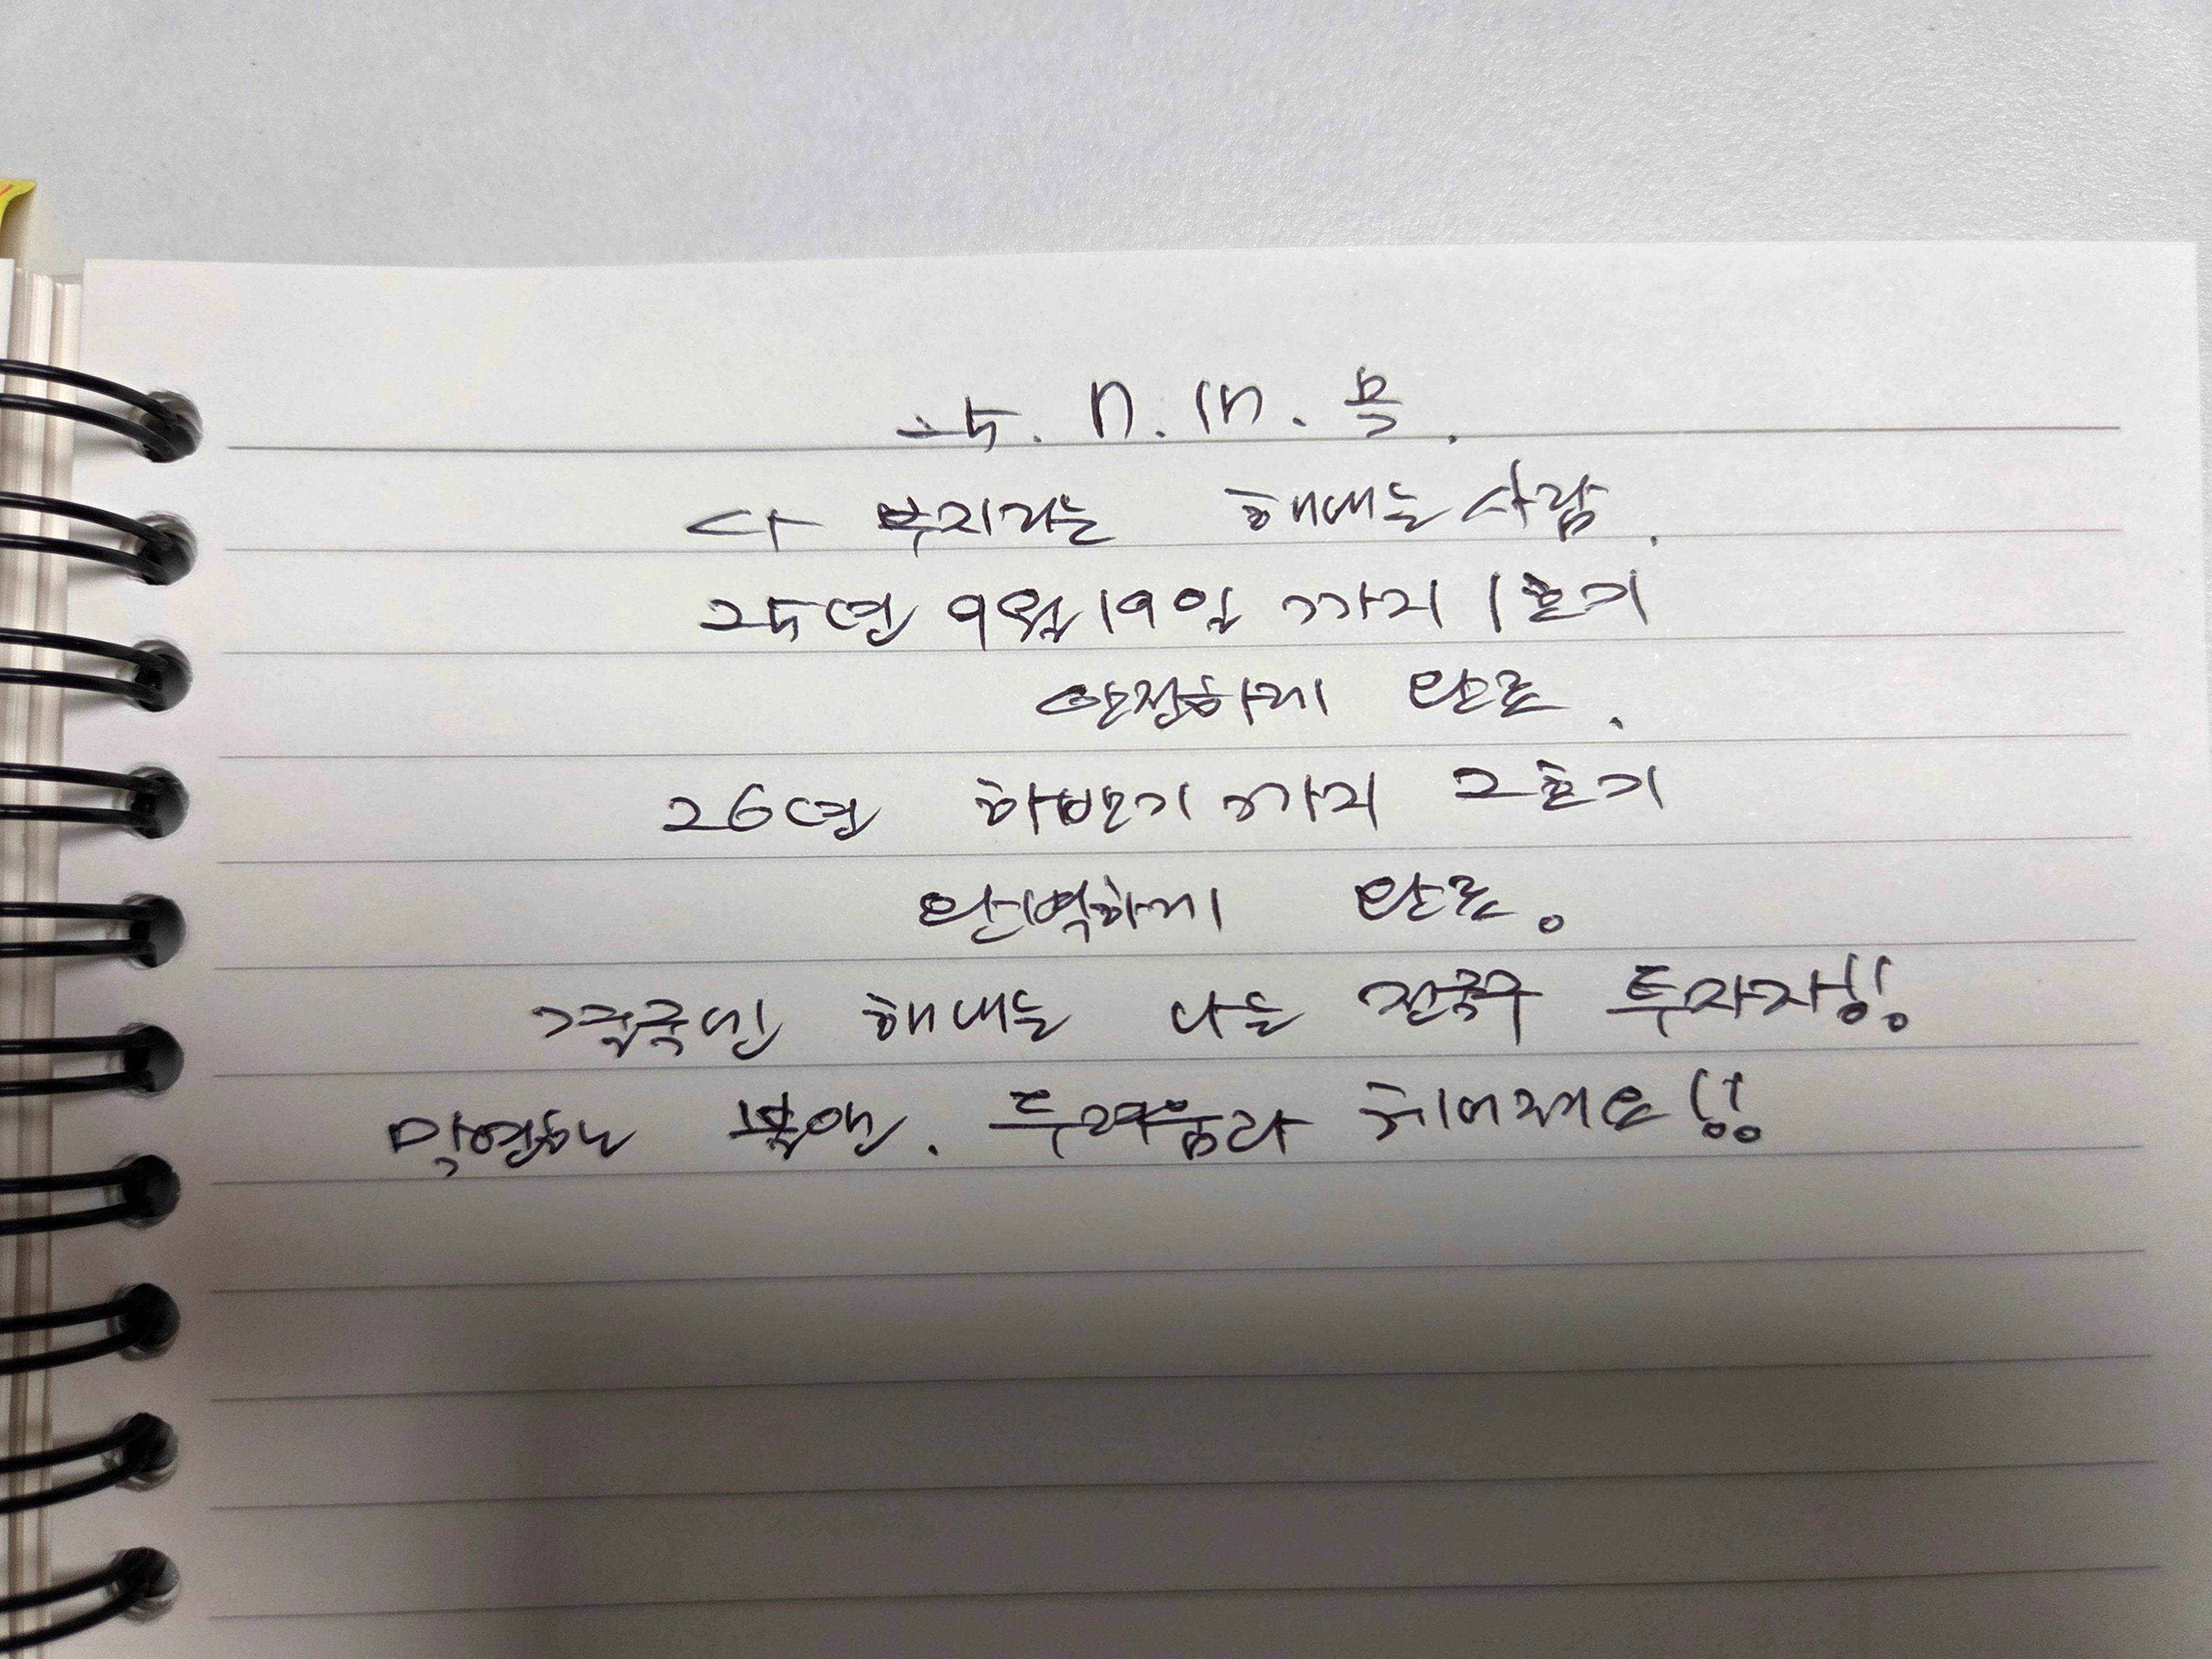 25. 11. 1n. 목.
다 부지라는 해내는 사람.
25년 9월 19일 까지 1호기
안전하게 완료.
26년 하반기 까지 2호기
완벽하게 완료.
결국엔 해내는 나는 전국구 투자자!!
막연한 불안. 두려움과 헤어져요!!